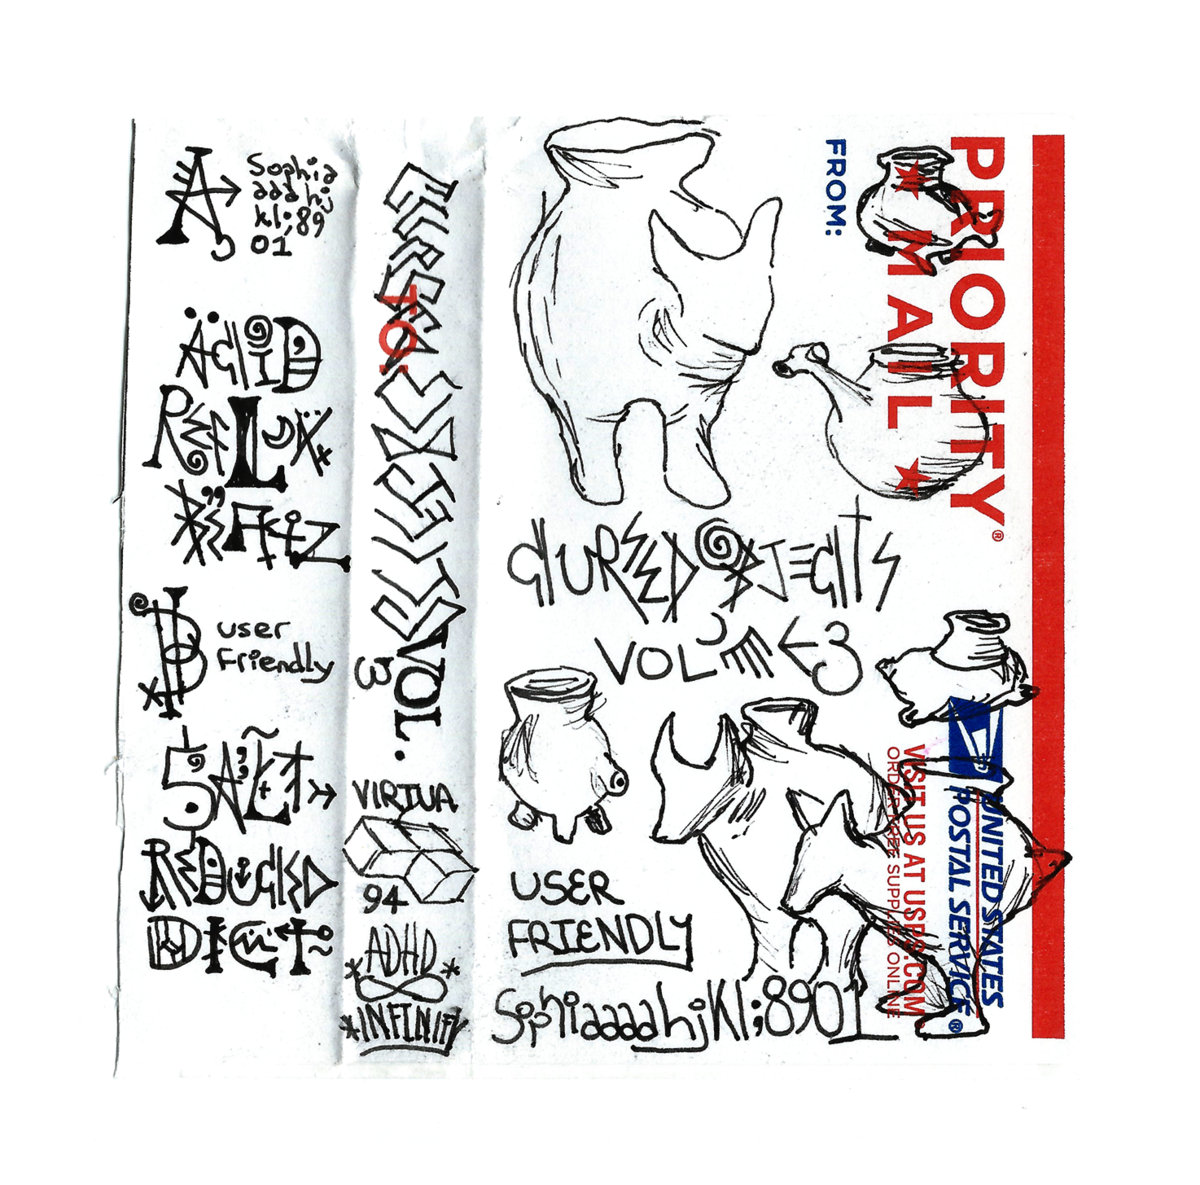 A
Sophia
aaahj
kl;89
01
ÄCID
REFLUX
BEATZ
B
user
Friendly
SALT
REDUCED
DIET
TO:
VOL.
3
VIRTUA
94
ADHD
*INFINITY
FROM:
PRIORITY®
★ MAIL ★
CURSED OBJECTS
VOL 3 <3
USER
FRIENDLY
Sophiaaaahjkl;8901
VISIT US AT USPS.COM
ORDER FREE SUPPLIES ONLINE
UNITED STATES
POSTAL SERVICE®